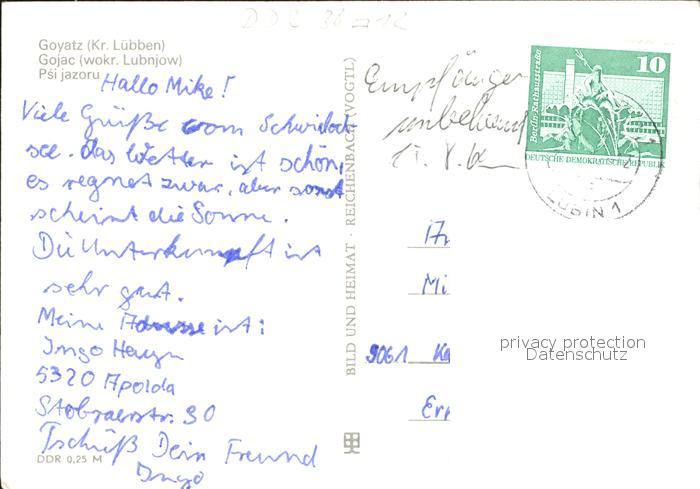 DDR 36 12
Goyatz (Kr. Lübben)
Gojac (wokr. Lubnjow)
Pśi jazoru
Hallo Mike!
Viele Grüße vom Schwieloch
see. das Wetter ist schön,
es regnet zwar, aber sonst
scheint die Sonne.
Die Unterkunft ist
sehr gut.
Meine Adresse ist:
Ingo
5320 Apolda
Stobraerstr. 30
Tschüß Dein Freund
Ingo
DDR 0,25 M
BILD UND HEIMAT · REICHENBACH (VOGTL)
Empfänger
unbekannt
Berlin, Rathausstraße
10
DEUTSCHE DEMOKRATISCHE REPUBLIK
LUBIN 1
An
Mi
9061 Ka
privacy protection
Datenschutz